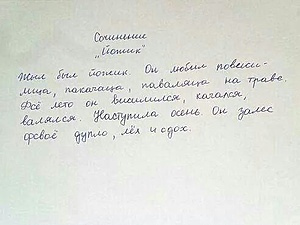 Сочинение
„Йожик"
Жыл был йожик. Он любил повеси-
лица, пакачаца, паваляца на траве.
Фсё лето он висилился, качался,
валялся. Наступила осень. Он залес
фсваё дупло, лёх и здох.